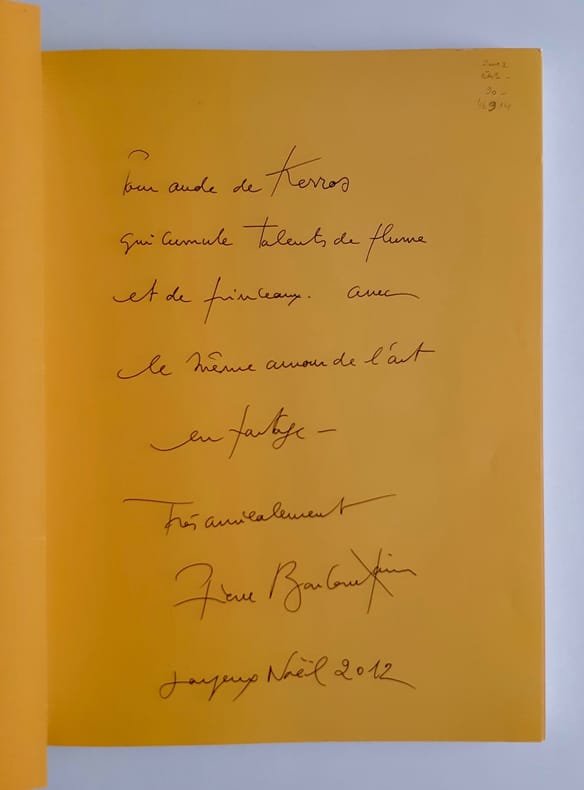 Pour aude de Kerros
qui cumule talents de plume
et de pinceaux. avec
le même amour de l'art
en partage –
Très amicalement
Pierre
Joyeux Noël 2012